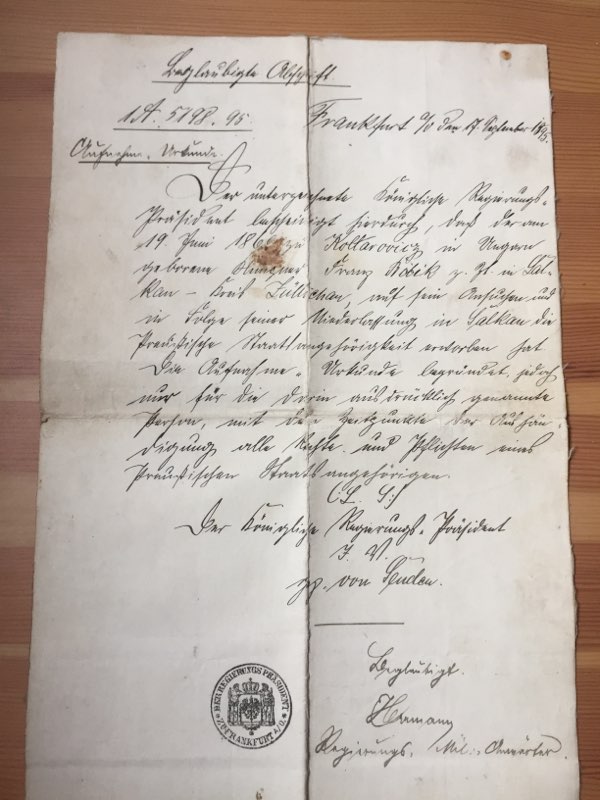 Beglaubigte Abschrift
1A. 5798. 95.
Frankfurt a/O den 17. September 1895.
Aufnahme-Urkunde.
Der unterzeichnete Königliche Regierungs-
Präsident bescheinigt hierdurch, daß der am
19. Juni zu Kottarovicz in Ungarn
geborene Franz Bobik z. Zt. in Säl-
kan - Kreis Züllichau, auf sein Ansuchen und
in Folge seiner Niederlassung in Sälkan die
Preußische Staatsangehörigkeit erworben hat
Die Aufnahme-Urkunde begründet jedoch
nur für die darin ausdrücklich genannte
Person, mit dem Zeitpunkte der Aushän-
digung alle Rechte und Pflichten eines
Preußischen Staatsangehörigen.
(L. S.)
Der Königliche Regierungs-Präsident
J. V.
gz. von
Beglaubigt.
Hermann
Regierungs-Mil.-Anwärter.
DER REGIERUNGS PRÄSIDENT
ZU FRANKFURT A/O.